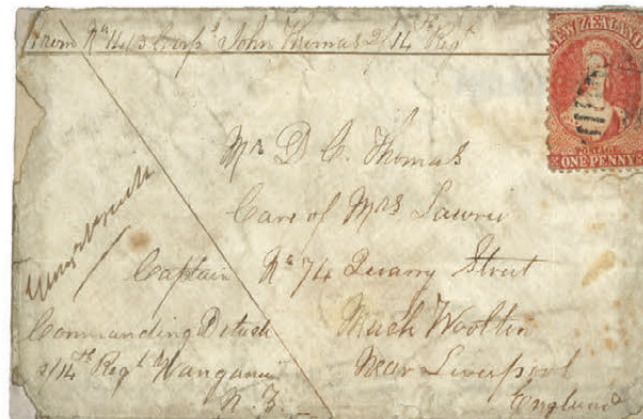 From No 1413 Corpl John Thomas 2/14th Regt
NEW ZEALAND
POSTAGE
ONE PENNY
Mr D C. Thomas
Care of Mrs Lawrie
No 74 Quarry Street
Much Woolton
Near Liverpool
England
Captain
Commanding Detach
2/14th Regt Wanganui
N. Z